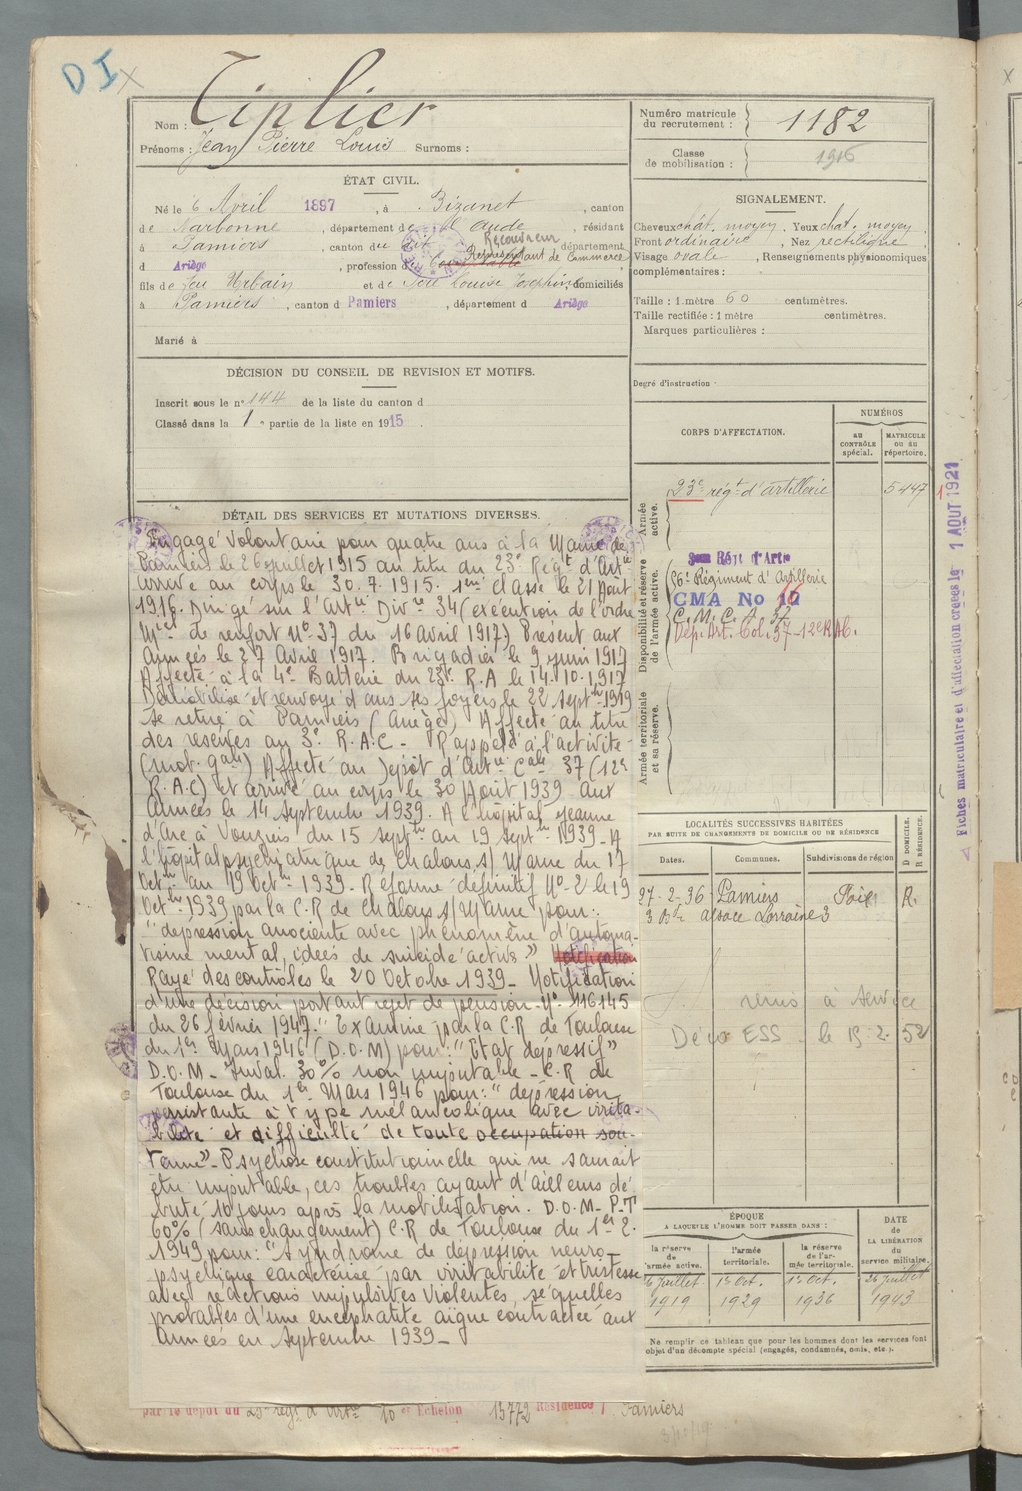 D I
Tiplier
Nom :
Prénoms : Jean Pierre Louis Surnoms :
Numéro matricule du recrutement : 1182
Classe de mobilisation : 1915
ÉTAT CIVIL.
Né le 6 Avril 1897, à Bizanet, canton
de Narbonne, département de l'Aude, résidant
à Pamiers, canton du dit, département
Receveur
d Ariège, profession de Représentant de Commerce
fils de feu Urbain et de Louise Joséphine domiciliés
à Pamiers, canton d Pamiers, département d Ariège
Marié à
DÉCISION DU CONSEIL DE REVISION ET MOTIFS.
Inscrit sous le n° 144 de la liste du canton d
Classé dans la 1e partie de la liste en 1915.
SIGNALEMENT.
Cheveux chât. moyen, Yeux chat. moyen
Front ordinaire, Nez rectiligne
Visage ovale, Renseignements physionomiques
complémentaires :
Taille : 1 mètre 60 centimètres.
Taille rectifiée : 1 mètre centimètres.
Marques particulières :
Degré d'instruction :
CORPS D'AFFECTATION.
NUMÉROS
AU CONTRÔLE spécial.
MATRICULE ou au répertoire.
Armée active.
23e régt d'artillerie 5447
Disponibilité et réserve de l'armée active.
Régt d'Artie
56e Régiment d'Artillerie
CMA No 16
C. M. C. A. 37
Dép. Art. Col. 37 - 12e R.A.C.
Armée territoriale et sa réserve.
Fiches matriculaire et d'affectation créées le 1 AOUT 1921
DÉTAIL DES SERVICES ET MUTATIONS DIVERSES.
Engagé volontaire pour quatre ans à la Mairie de
Pamiers le 26 juillet 1915 au titre du 23e Régt d'Artie
arrivé au corps le 30.7.1915. 1ère classe le 21 Août
1916. Dirigé sur l'Artie Divre 34 (exécution de l'ordre
Mel de renfort N° 37 du 16 avril 1917) Présent aux
Armées le 27 Avril 1917. Brigadier le 9 juin 1917
Affecté à la 4e Batterie du 23e R.A le 14.10.1917
Démobilisé et renvoyé dans ses foyers le 22 Septbre 1919
se retire à Pamiers (Ariège) Affecté au titre
des réserves au 3e R.A.C - Rappelé à l'activité
(mob. gale) Affecté au Dépôt d'Artie Cale 37 (12e
R.A.C) et arrivé au corps le 30 Août 1939 Aux
Armées le 14 Septembre 1939. A l'hôpital Jeanne
d'Arc à Vouziers du 15 septbre au 19 septbre 1939 - A
l'hôpital psychiatrique de Chalons s/ Marne du 17
Octbre au 19 Octbre 1939 - Réformé définitif N° 2 le 19
Octbre 1939 par la C.R de Chalons s/ Marne pour :
"dépression anxiente avec phénomène d'automa-
tisme mental, idées de suicide actives" Notification
Rayé des contrôles le 20 Octobre 1939 - Notification
d'une décision portant rejet de pension - N° 116145
du 26 février 1947. "Examiné par la C.R de Toulouse
du 1er Mars 1946 (D.O.M) pour : "Etat dépressif"
D.O.M - Inval. 30% non imputable - C.R de
Toulouse du 1er Mars 1946 pour : "dépression
persistante à type mélancolique avec irrita-
bilité et difficulté de toute occupation sou-
tenue" - Psychose constitutionnelle qui ne saurait
être imputable, ces troubles ayant d'ailleurs dé-
buté 10 jours après la mobilisation. D.O.M - P.T
60% (sans changement) C.R de Toulouse du 1er 2.
1949 pour : "Syndrome de dépression neuro-
psychique caractérisé par irritabilité et tristesse
avec réactions impulsives violentes, séquelles
probables d'une encéphalite aigüe contractée aux
Armées en Septembre 1939 -
LOCALITÉS SUCCESSIVES HABITÉES
PAR SUITE DE CHANGEMENTS DE DOMICILE OU DE RÉSIDENCE
Dates. Communes. Subdivisions de région
D DOMICILE. R RÉSIDENCE.
27-2-36 Pamiers Foix R.
alsace Lorraine 3
remis à service
ESS le 15.2.52
ÉPOQUE
A LAQUELLE L'HOMME DOIT PASSER DANS :
la réserve de l'armée active. l'armée territoriale. la réserve de l'armée territoriale.
DATE de LA LIBÉRATION du service militaire.
26 juillet 1919 1er Oct. 1929 1er Oct. 1936 26 juillet 1943
Ne remplir ce tableau que pour les hommes dont les services font
objet d'un décompte spécial (engagés, condamnés, omis, etc.).
par le dépôt du 23e régt d'Artie 10e Echelon 15772 Résidence Pamiers